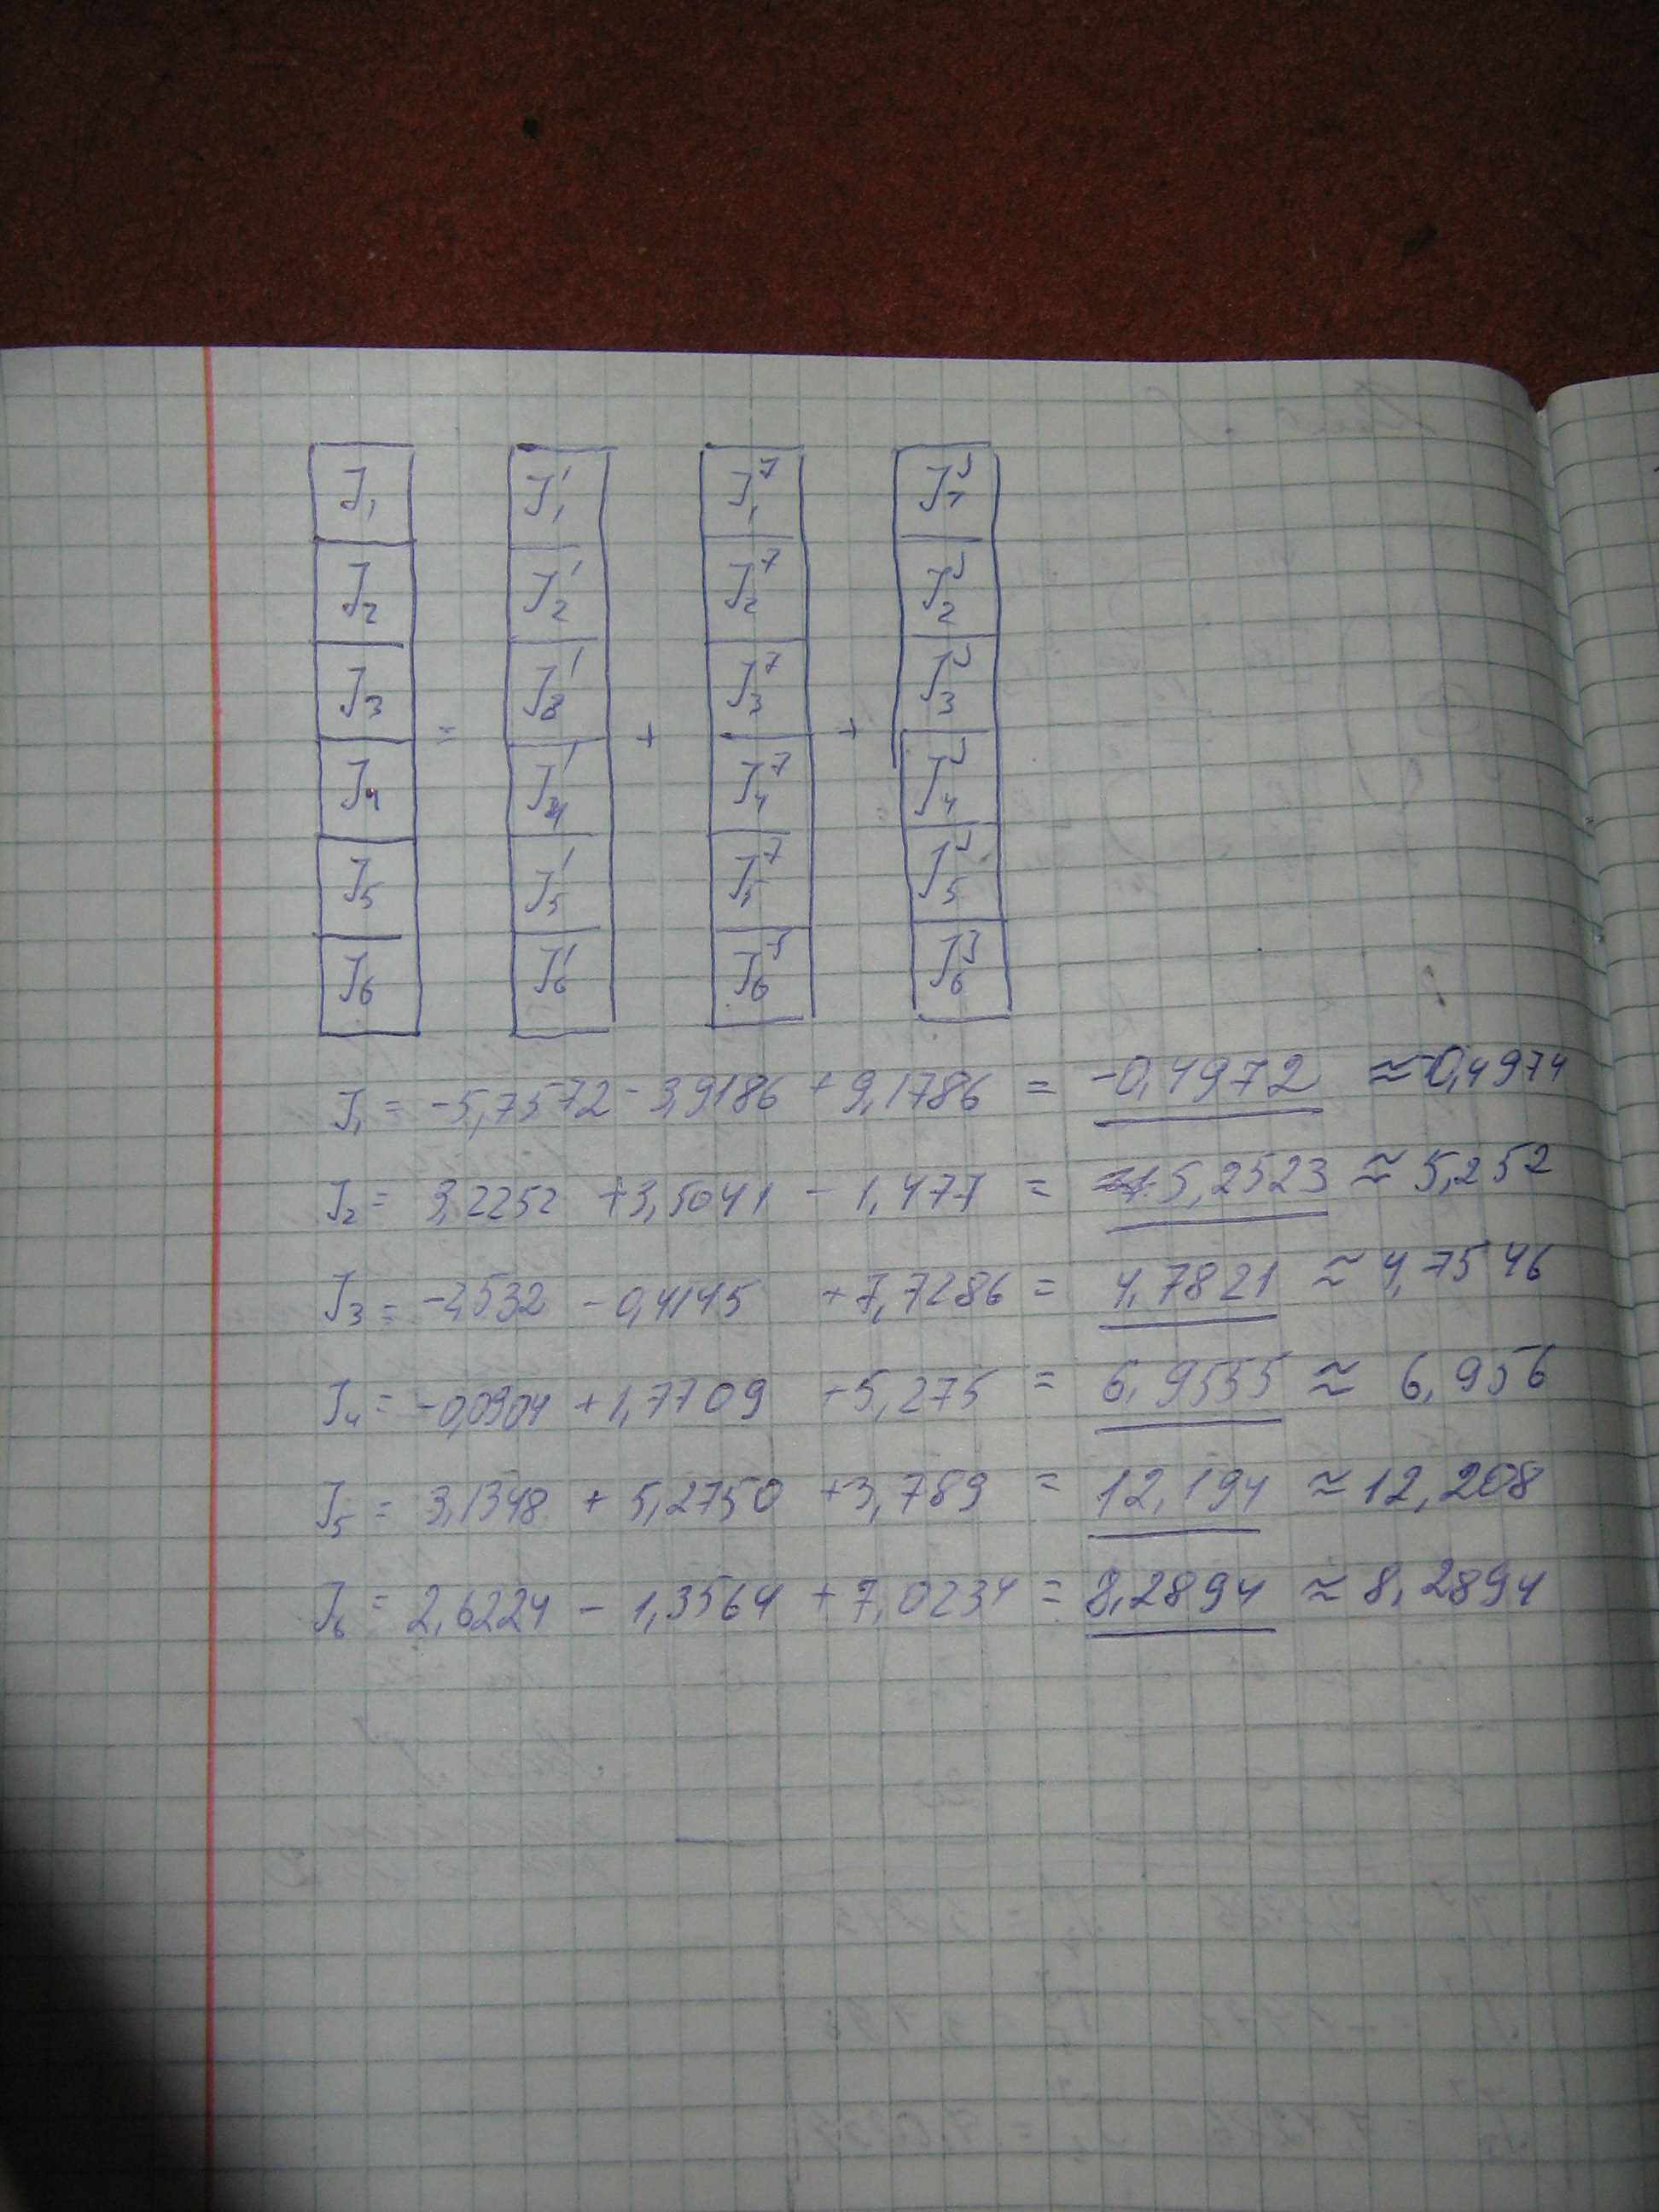 J₁ J₁' J₁⁷ J₁ᴶ
J₂ J₂' J₂⁷ J₂ᴶ
J₃ J₃' J₃⁷ J₃ᴶ
= + +
J₄ J₄' J₄⁷ J₄ᴶ
J₅ J₅' J₅⁷ J₅ᴶ
J₆ J₆' J₆ᴶ J₆ᴶ
J₁ = -5,7572 - 3,9186 + 9,1786 = -0,4972 ≈ -0,4974
J₂ = 3,2252 + 3,5041 - 1,477 = 5,2523 ≈ 5,252
J₃ = -2,532 - 0,4145 + 7,7286 = 4,7821 ≈ 4,7546
J₄ = -0,0904 + 1,7709 + 5,275 = 6,9555 ≈ 6,956
J₅ = 3,1348 + 5,2750 + 3,789 = 12,194 ≈ 12,208
J₆ = 2,6224 - 1,3564 + 7,0234 = 8,2894 ≈ 8,2894